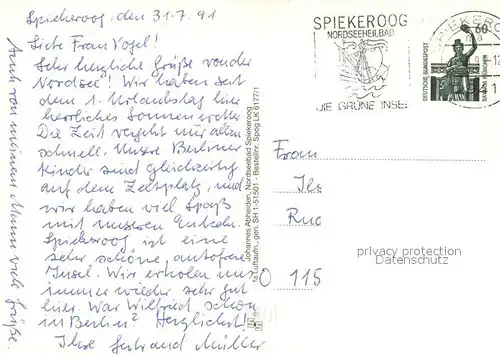 Spiekeroog, den 31.7.91
Liebe Frau Vogel!
Sehr herzliche Grüße von der
Nordsee! Wir haben seit
dem 1. Urlaubstag hier
herrliches Sonnenwetter.
Die Zeit vergeht nur allzu
schnell. Unsere Berliner
Kinder sind gleichzeitig
auf dem Zeltplatz, und
wir haben viel Spaß
mit unseren Enkeln.
Spiekeroog ist eine
sehr schöne, autofreie
Insel. Wir erholen uns
immer wieder sehr gut
hier. War Wilfried schon
in Berlin? Herzlichst!
Ihre Gertraud Müller
Auch von meinem Mann viele Grüße.
Johannes Abheiden, Nordseebad Spiekeroog
fa Luftaufn., gen. SH 1-51501 - Bestellnr. Spog LK 6177/1
SPIEKEROOG
NORDSEEHEILBAD
DIE GRÜNE INSEL
SPIEKERO
60
DEUTSCHE BUNDESPOST
BAVARIA MÜNCHEN
Frau
Ils
Rud
O 115
privacy protection
Datenschutz